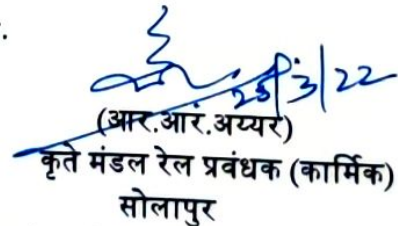 25/3/22
(आर.आर.अय्यर)
कृते मंडल रेल प्रवंधक (कार्मिक)
सोलापुर